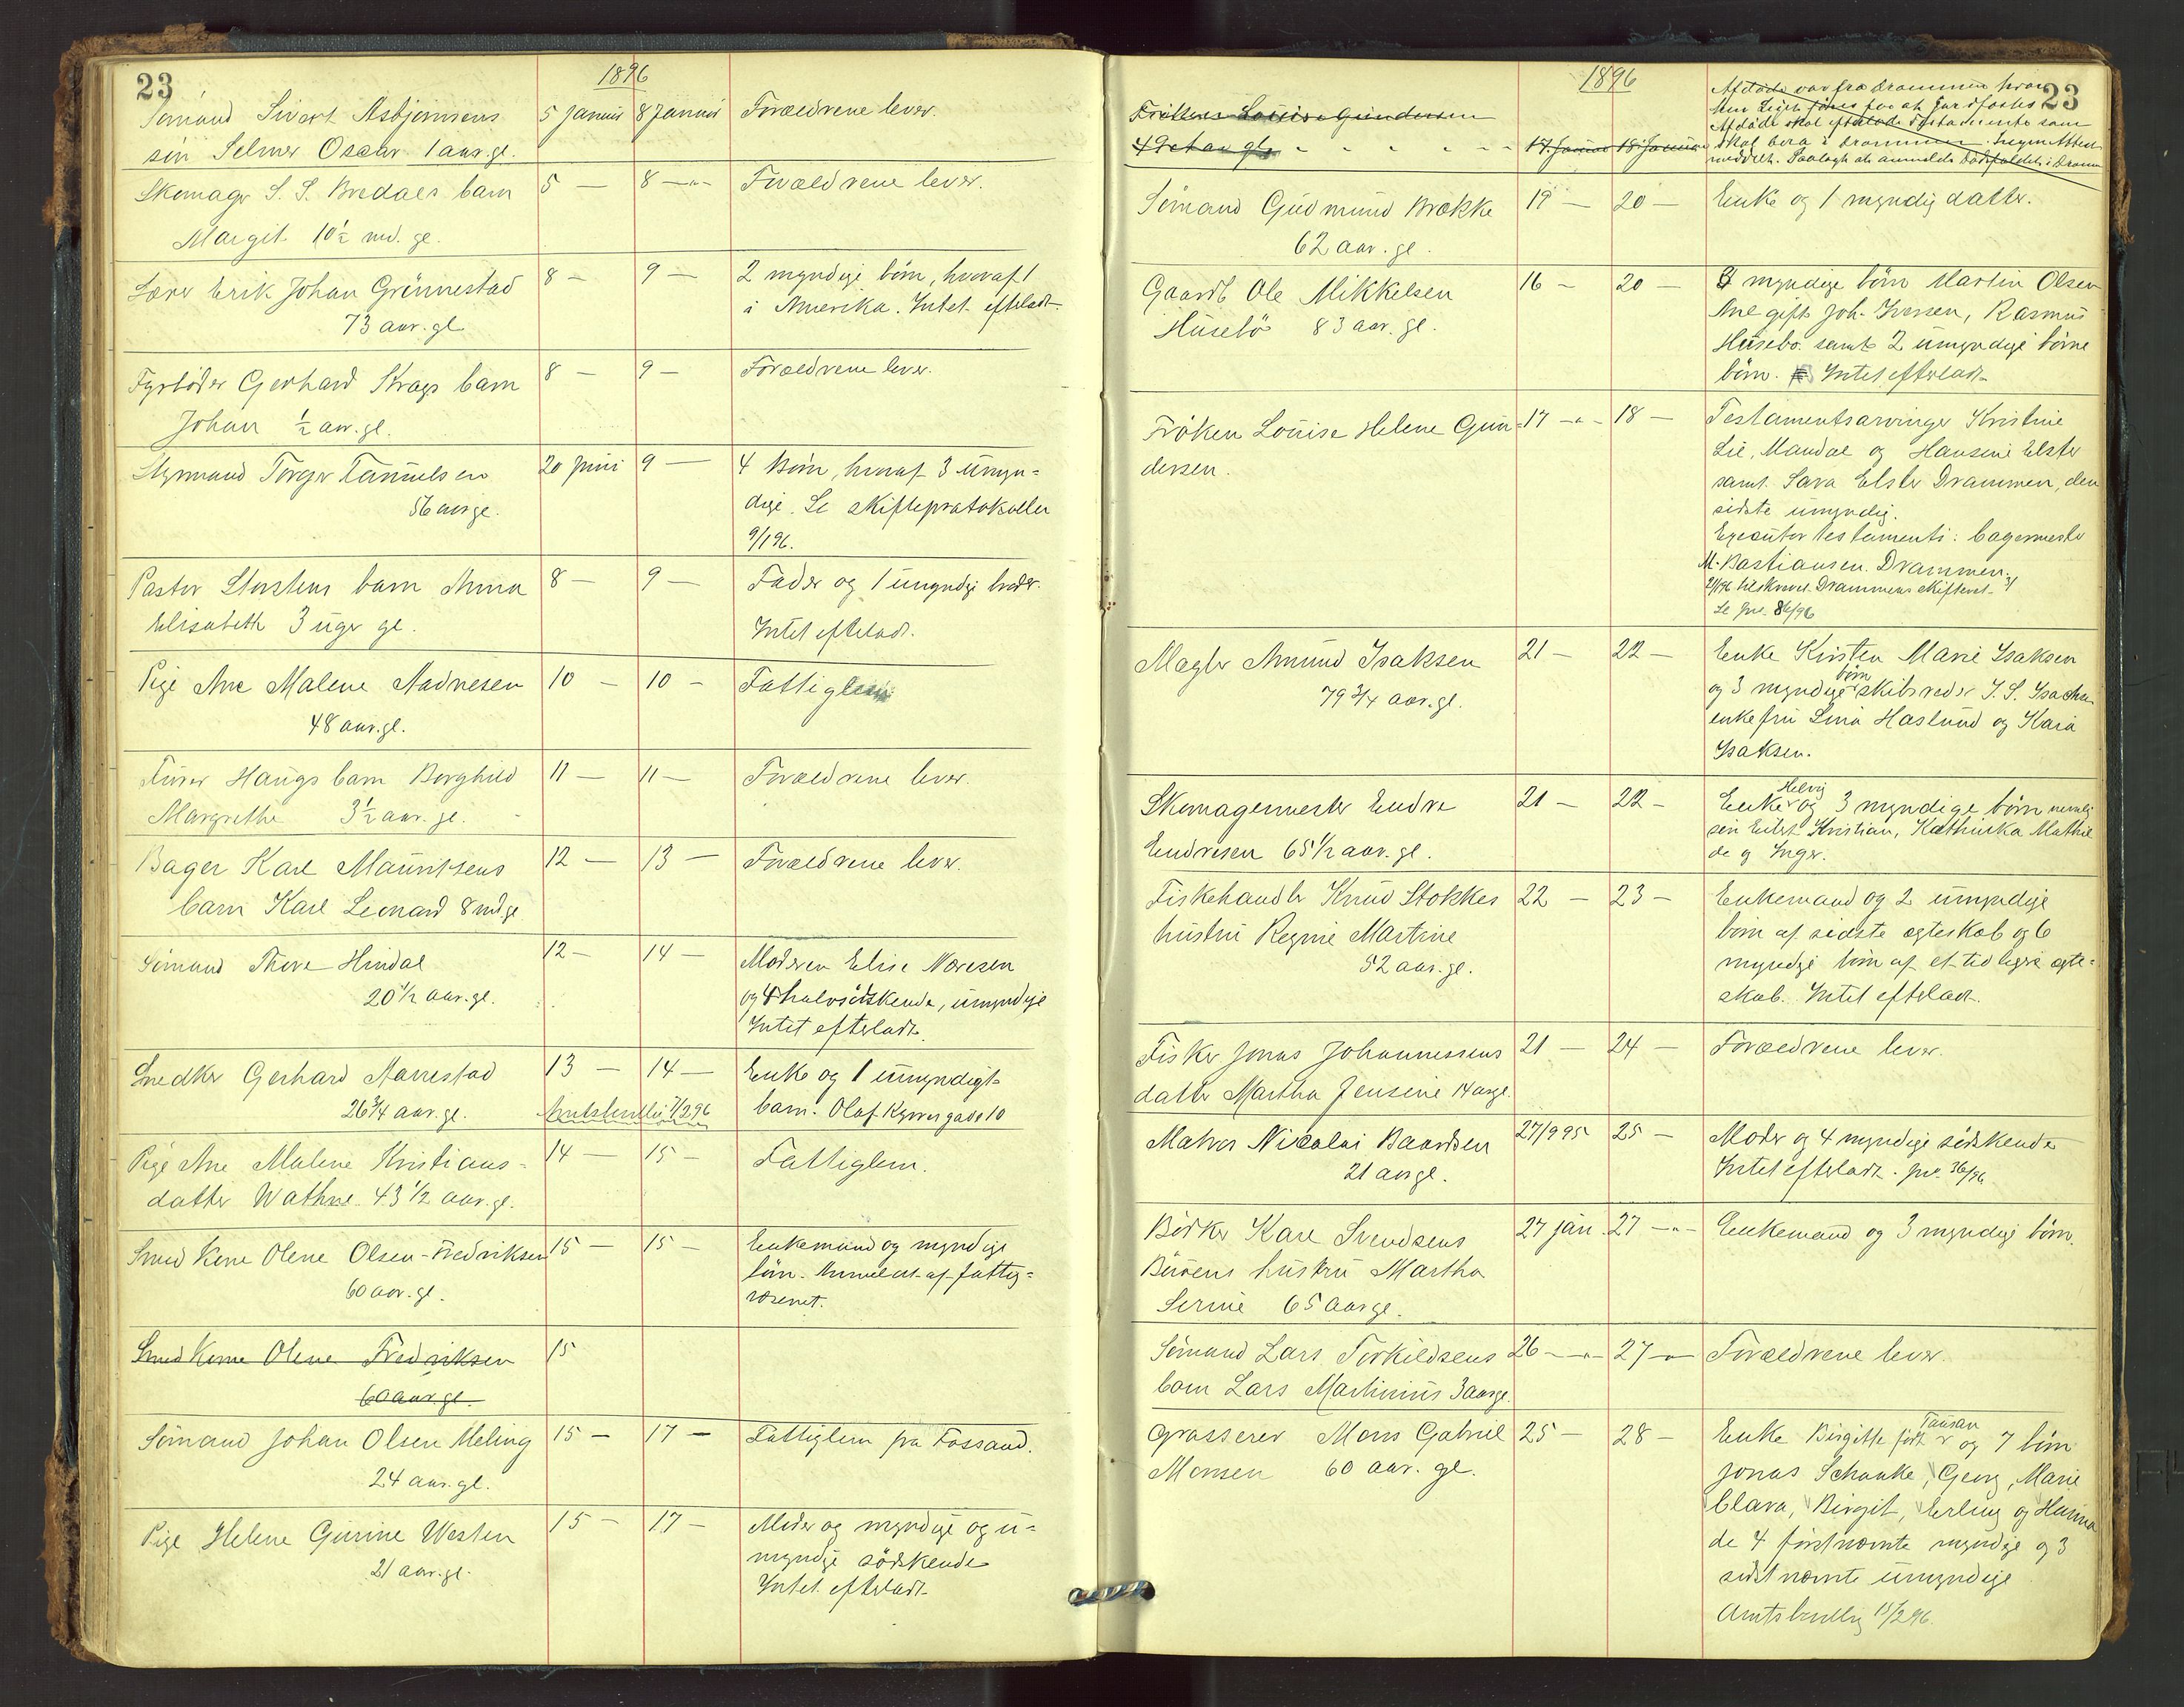 23
1896
Sømand Sivert Asbjørnsens
søn Selmer Oscar 1 aar gl.
5 Januar
8 Januar
Forældrene lever.
Skomager S. S. Bredals barn
Margit 10½ md. gl.
5 —
8 —"—
Forældrene lever.
Lærer Erik Johan Grønnestad
73 aar. gl.
8 —
9 —
2 myndige børn, hvoraf 1
i Amerika. Intet efterladt.
Fyrbøder Gerhard Krags barn
Johan ½ aar. gl.
8 —
9 —
Forældrene lever.
Styrmand Torger Samuelsen
56 aar gl.
20 Juni
9 —
4 Børn, hvoraf 3 umyn=
dige. Se skifteprotokollen
9/1 96.
Pastor Storstens barn Anna
Elisabeth 3 uger gl.
8 —
9 —
Fader og 1 umyndig broder.
Intet efterladt.
Pige Ane Malene Aadnesen
48 aar. gl.
10 —
10 —
Fattiglem
Haugs barn Borghild
Margrethe 3½ aar. gl.
11 —
11 —
Forældrene lever.
Bager Karl Mauritsens
barn Karl Leonard 8 md gl
12 —
13 —
Forældrene lever.
Sømand Thore Hindal
20½ aar. gl.
12 —
14 —
Moderen Elise Næresen
og 4 halvsødskende, umyndige
Intet efterladt.
Snedker Gerhard Aarrestad
26¾ aar. gl.
13 —
14 —
Amtsbevilling 7/2 96
Enke og 1 umyndigt
barn. Olaf Kyrresgade 10
Pige Ane Malene Kristians=
datter Wathne. 43½ aar. gl.
14 —
15 —
Fattiglem.
Smed Kone Olene Olsen-Fredriksen
60 aar. gl.
15 —
15 —
Enkemand og myndige
børn. Anmeldt af fattig=
væsenet.
Smed Kone Olene Fredriksen
60 aar. gl.
15
Sømand Johan Olsen Meling
24 aar. gl.
15 —
17 —
Fattiglem fra Fossand.
Pige Helene Gurine Westen
21 aar. gl.
15 —
17 —
Moder og myndige og u=
myndige sødskende
Intet efterladt
1896
23
Frøken Louise Gundersen
17. Januar
18 Januar
Afdøde var fra Drammen hvor
Afdøde skal efterlade Testamente som
skal bero i Drammen.
Sømand Gudmund Brække
62 aar. gl.
19 —
20 —
Enke og 1 myndig datter.
Gaardb Ole Mikkelsen
Husebø 83 aar. gl.
16 —
20 —
myndige børn Martin Olsen
Ane gift Joh. Iversen, Rasmus
Husebø samt 2 umyndige børne
børn. Intet efterladt
Frøken Louise Helene Gun=
dersen.
17 —"—
18 —
Testamentsarvinger Kristine
Lie, Mandal og Hansine Elster
samt Sara Elster Drammen, den
sidste umyndig.
Executor testamenti: bagermester
M. Bastiansen. Drammen.
21/1 96 tilskrevet Drammens skifteret
Se jnr. 86/96
Mægler Amund Isaksen
79¾ aar. gl.
21 —
22 —
Enke Kirsten Marie Isaksen
og 3 myndige børn skibsreder I. S. Isachsen
enkefru Lina Haslund og Kaia
Isaksen.
Skomagermester Endre
Endresen 65½ aar. gl.
21 —
22 —
Enke Helvig og 3 myndige børn nemlig
søn Eilert Kristian, Kathinka Mathil
de og Inger.
Fiskehandler Knud Stokkes
hustru Regine Martine
52 aar. gl.
22 —
23 —
Enkemand og 2 umyndige
børn af sidste ægteskab og 6
myndige børn af et tidligere ægte=
skab. Intet efterladt.
Fisker Jonas Johannessens
datter Martha Jensine 14 aar gl.
21 —
24 —
Forældrene lever.
Matros Nicolai Baardsen
21 aar gl.
27/9 95
25 —
Moder og 4 myndige sødskende
Intet efterladt. Jnr. 36/96
Bødker Karl Svendsens
Buøens hustru Martha
Serine 65 aar gl.
27 jan.
27 —"—
Enkemand og 3 myndige børn.
Sømand Lars Torkildsens
barn Lars Martinius 3 aar gl.
26 —"—
27 —"—
Forældrene lever.
Grosserer Mons Gabriel
Monsen 60 aar. gl.
25 —
28 —
Enke Birgitte født Tausan og 7 børn
Jonas Schanke, Georg, Marie
Clara, Birgit, Erling og Hanna
de 4 førstnævnte myndige og 3
sidstnævnte umyndige
Amtsbevillig 15/2 96.